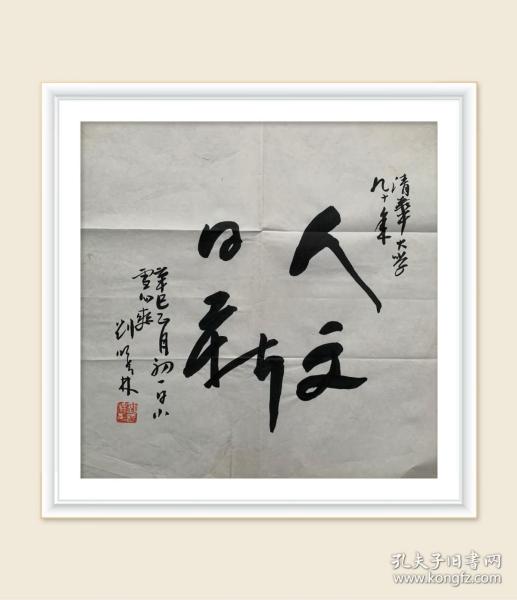 清華大学
九十年
人文
日新
辛巳正月初一日小
雪心爽
刘曦林
孔夫子旧书网
www.kongfz.com